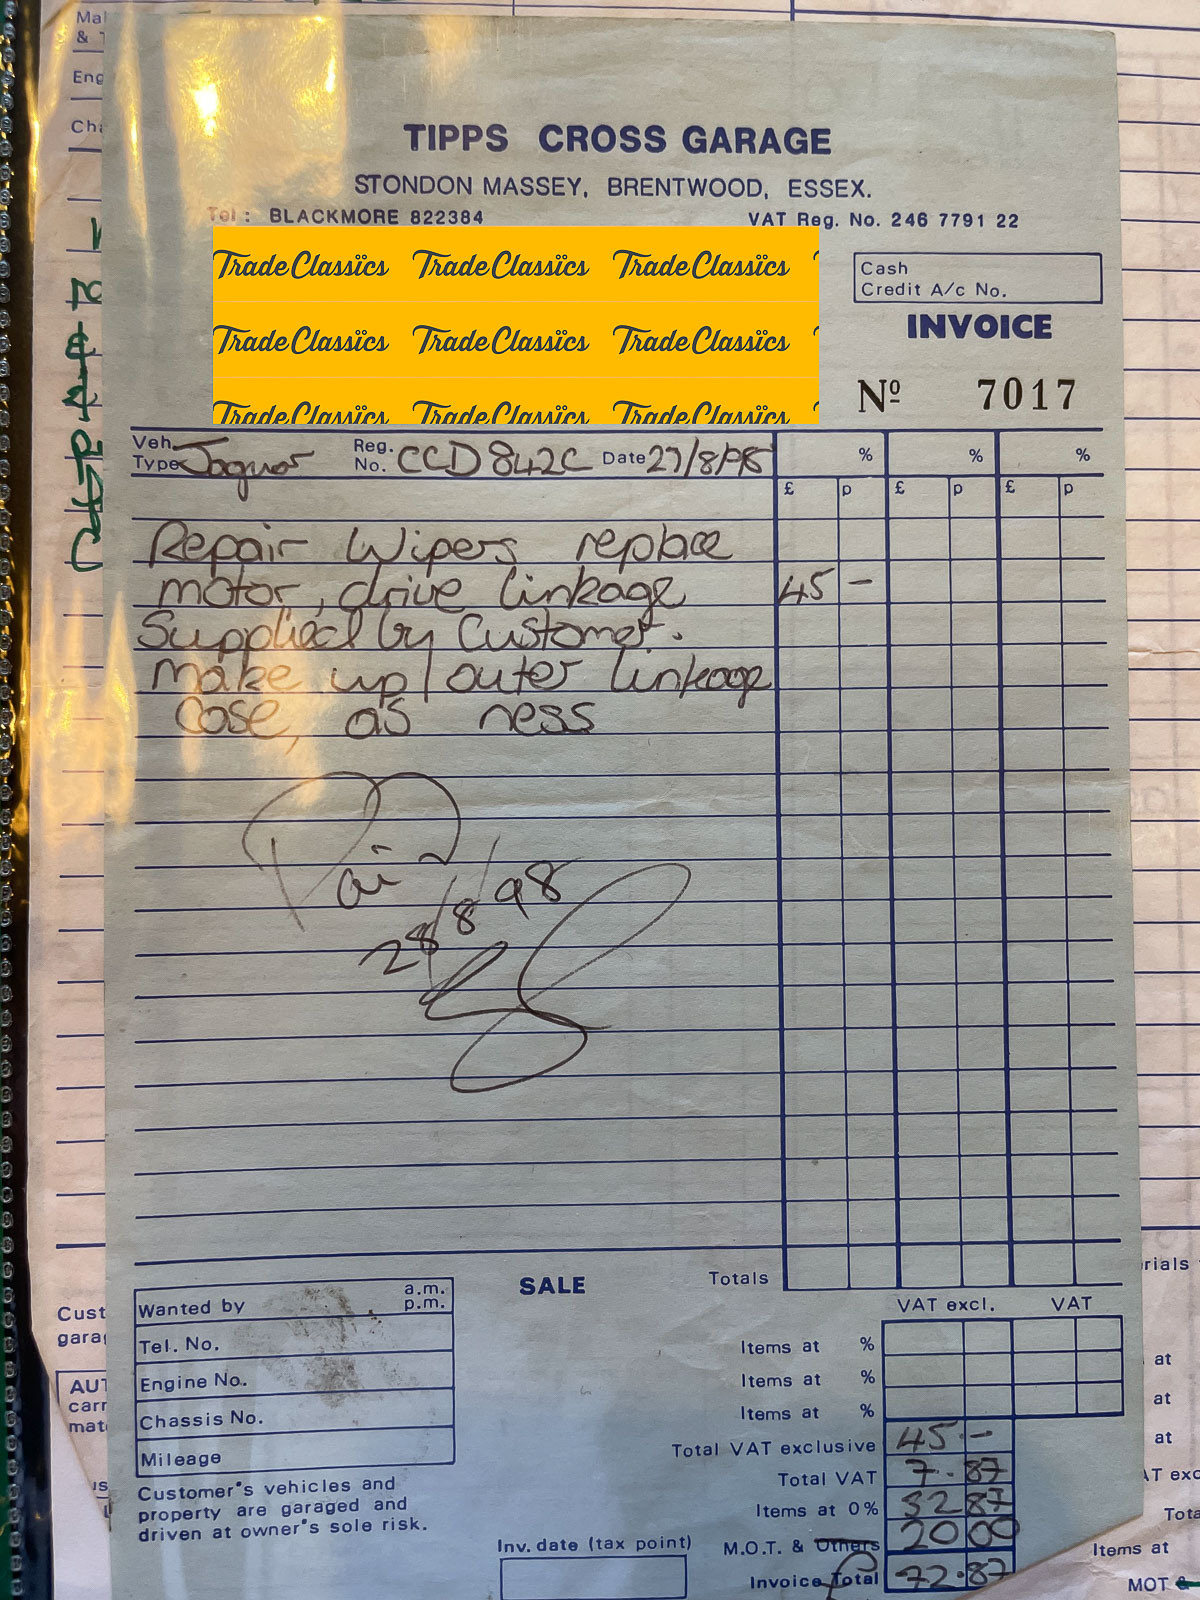 Mal
& T
Eng
Cha
TIPPS CROSS GARAGE
STONDON MASSEY, BRENTWOOD, ESSEX.
Tel: BLACKMORE 822384
VAT Reg. No. 246 7791 22
Trade Classics Trade Classics Trade Classics
Trade Classics Trade Classics Trade Classics
Trade Classics Trade Classics Trade Classics
Cash
Credit A/c No.
INVOICE
Nº 7017
Veh. Type Jaguar Reg. No. CCD 842C Date 27/8/98 % % %
£ p £ p £ p
Repair Wipers replace
motor, drive linkage 45 -
Supplied by Customer.
make up/outer linkage
case, as ness
Paid
28/8/98
Totals
SALE
Wanted by a.m. p.m.
Tel. No.
Engine No.
Chassis No.
Mileage
Customer's vehicles and
property are garaged and
driven at owner's sole risk.
Inv. date (tax point)
VAT excl. VAT
Items at %
Items at %
Items at %
Total VAT exclusive 45 -
Total VAT 7.87
Items at 0% 52 87
M.O.T. & Others 20 00
Invoice Total £ 72.87
Cust
garag
AUT
carr
mate
rials
at
at
at
AT exc
Tota
Items at
MOT &